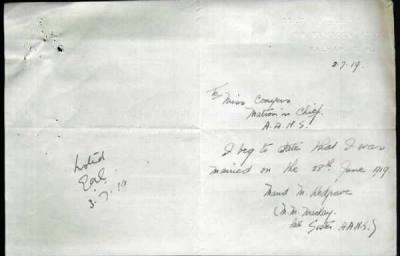 3.7.19.
To Miss Conyers
Matron in Chief.
A.A.N.S.
I beg to state that I was
married on the 28th June 1919.
Maud M. Redgrave
(M.M. Mackay.
late Sister A.A.N.S.)
Noted
3.7.19